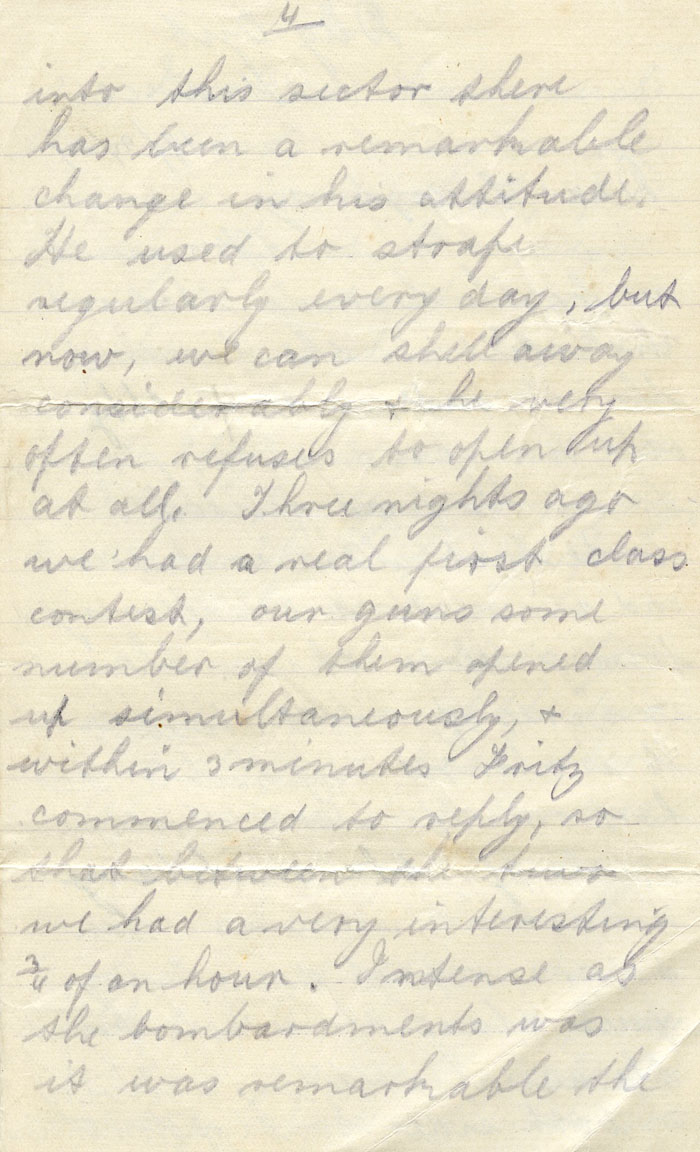 4
into this sector there
has been a remarkable
change in his attitude.
He used to strafe
regularly every day, but
now, we can shell away
considerably & he very
often refuses to open up
at all. Three nights ago
we had a real first class
contest, our guns some
number of them opened
up simultaneously, &
within 3 minutes Fritz
commenced to reply, so
that between the two
we had a very interesting
3/4 of an hour. Intense as
the bombardments was
it was remarkable the